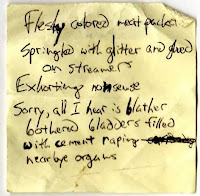 Fleshy colored meat packets
Springled with glitter and glued
on streamers
Exhorting nonsense
Sorry, all I hear is blather
bothered bladders filled
with cement raping
nearbye organs